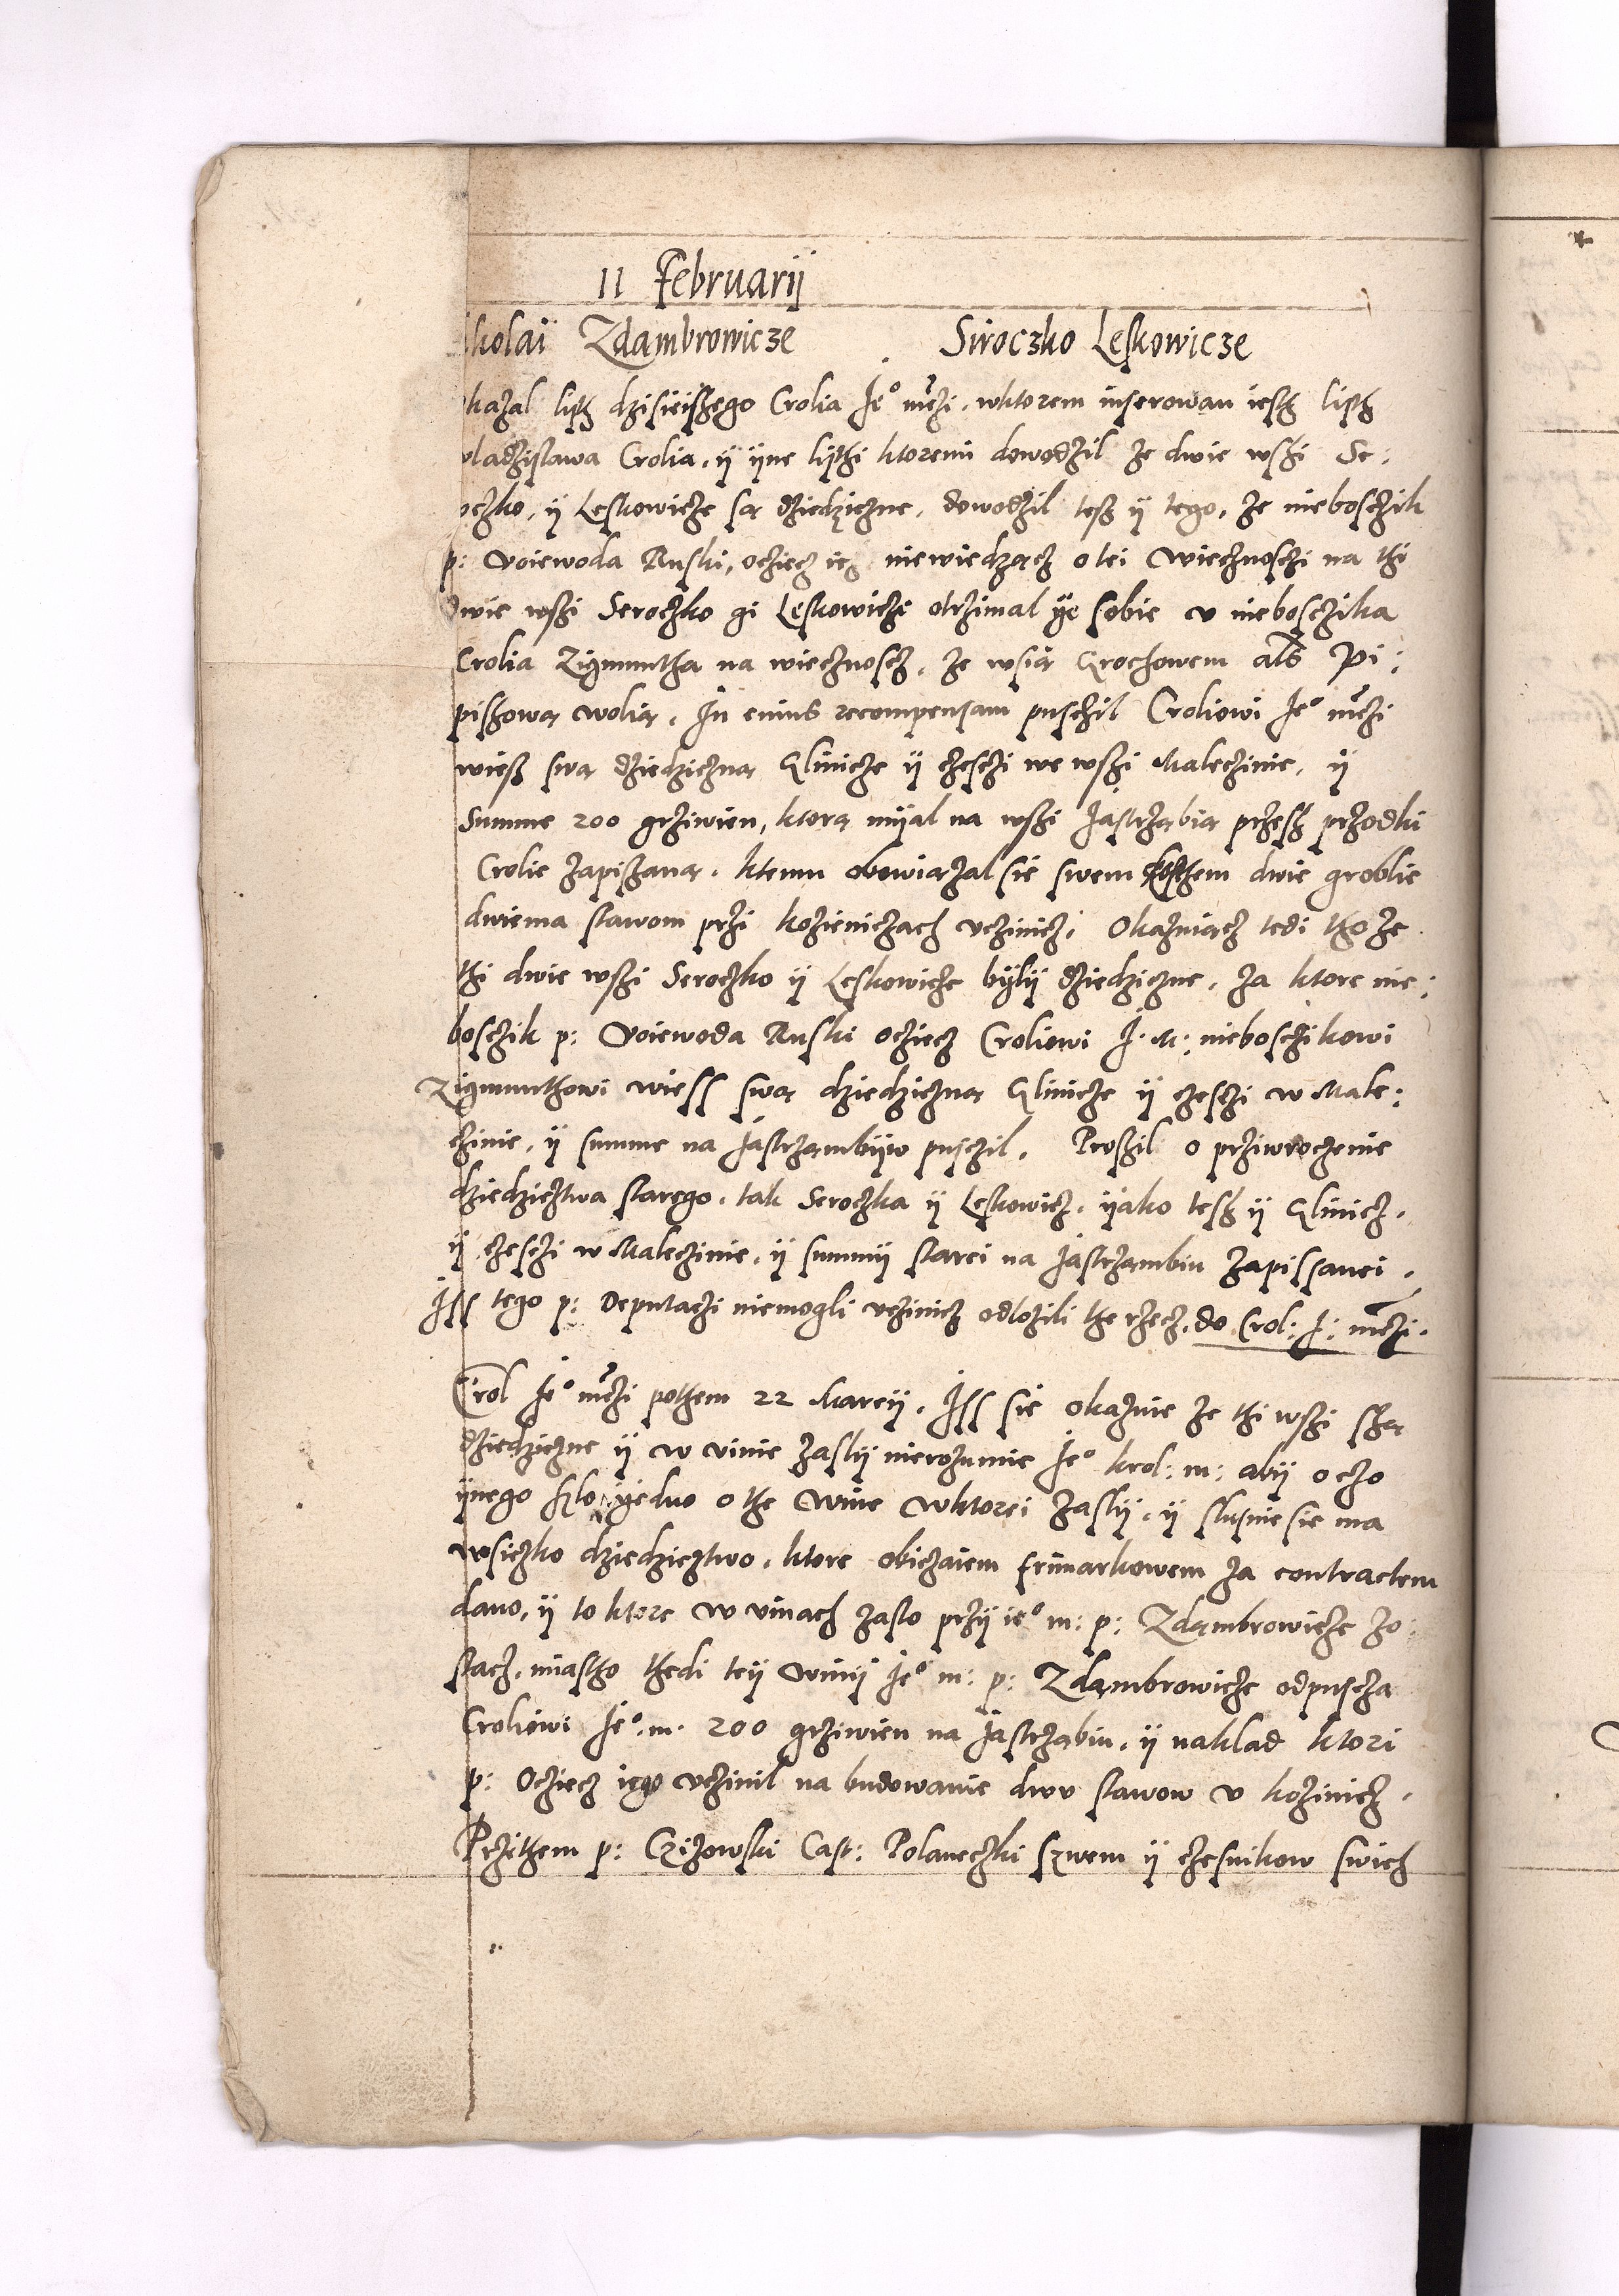 11 Februarij
kolai Zdambrowicze Siroczko Leskowicze
kazal lysth dzisieiszego Crolia Je° mczi, wktorem inserowan iesth listh
vladzislawa Crolia, ÿ ÿne listhi ktoremi dowodzil ze dwie wszi Se:
oczko, ÿ Leskowicze są dziedziczne, dowodzil tesz ÿ tego, ze nieboszczik
p: Voiewoda Ruski, ocziecz ieg niewiedzącz o tei wiecznosczi na thi
Dwie wszi Seroczko ÿ Leskowiczi otrzimal ÿe sobie v nieboszczika
Crolia Zigmuntha na wiecznoscz, ze wsią Grochowem als Pi:
piszową wolią, In cuius recompensam pusczil Croliowi Je° mczi
wiesz swą dziedziczną Glinicze ÿ czesczi we wszi Malechinie, ÿ
Summe 200 grziwien, ktorą mÿal na wszi Jastrzabią przesz przodki
Crolie zapiszaną, ktemu obowiązal sie swem kosthem dwie groblie
dwiema stawom przi kozieniczach vczinicz, Okazuiącz tedi tho ze
thi dwie wszi Seroczko ÿ Leskowicze bÿlÿ dziedziczne, za ktore nie:
boszczik p: Voiewoda Ruski ocziecz Croliowi J. M: nieboszczikowi
Zigmunthowi wiess swą dziedziczną Glinicze ÿ czesczi w Male:
chinie, ÿ summe na Jastrzambÿw pusczil, Proszil o prziwroczenie
dziedzicztwa starego, tak Seroczka ÿ Leskowicz, ÿako tesz ÿ Glinicz,
ÿ czesczi w Malechinie, ÿ summÿ starei na Jastrzambiu zapissanei,
Iss tego p: Deputaczi niemogli vczinicz odlozili the rzecz, do Crol: J: mczi.
Crol Je° mczi pothem 22 Marcÿ, Iss sie okazuie ze thi wszi szą
dziedziczne ÿ w vinie zaslÿ nierozumie Je° krol: m: abÿ o czo
ÿnego szlo ÿedno o the wine wktorei zaslÿ, ÿ slusnie sie ma
wsiczko dziedzicztwo, ktore obiczaiem frimarkowem za contractem
dano, ÿ to ktore w vinach zaslo przÿ ie° m: p: Zdambrowicze zo:
stacz, miastho thedi teÿ winÿ Je° m: p: Zdambrowicze odpuscza
Croliowi Je°. m. 200 grziwien na Jastrzabiu, ÿ naklad ktori
p: Ocziecz iego vczinil na budowanie dwv stawow v kozinicz,
Przithem p: Czizowski Cast: Polaneczki szwem ÿ czesnikow swich